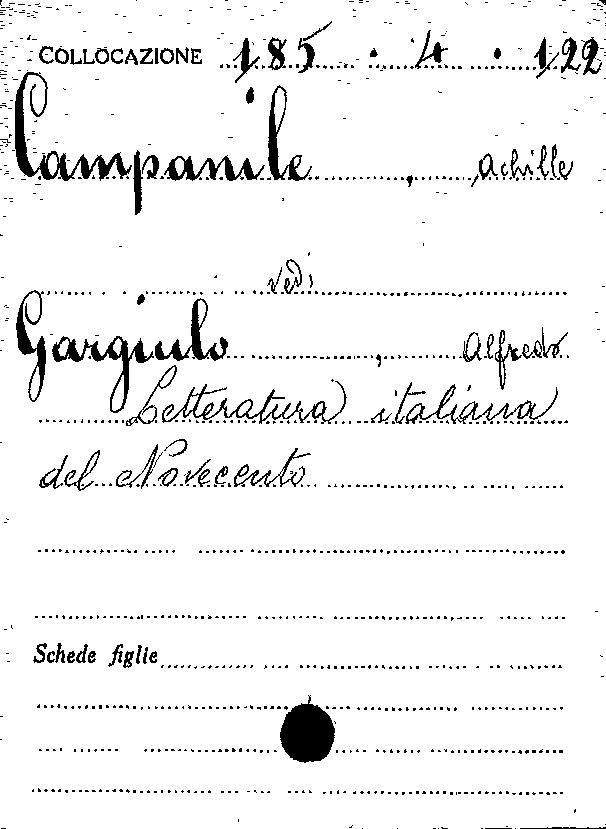 COLLOCAZIONE 185 . 4 . 122
Campanile , Achille
vedi
Gargiulo , Alfredo
Letteratura italiana
del Novecento
Schede figlie